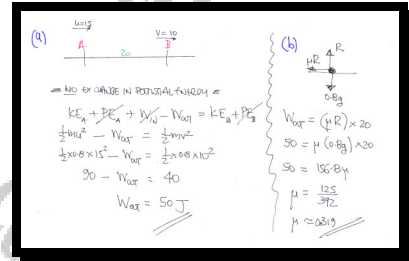 (a)
u=15
V=10
A
B
20
= NO EXCHANGE IN POTENTIAL ENERGY =
KE_A + PE_A + W_IN - W_OUT = KE_B + PE_B
½mu² - W_OUT = ½mv²
½×0.8×15² - W_OUT = ½×0.8×10²
90 - W_OUT = 40
W_OUT = 50 J
(b)
R
μR
0.8g
W_OUT = (μR) × 20
50 = μ(0.8g) × 20
50 = 156.8μ
μ = 125/392
μ ≈ 0.319